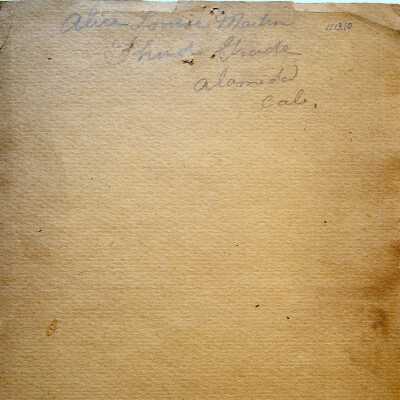 Alice Louise Martin
Third Grade
Alameda
Cal.